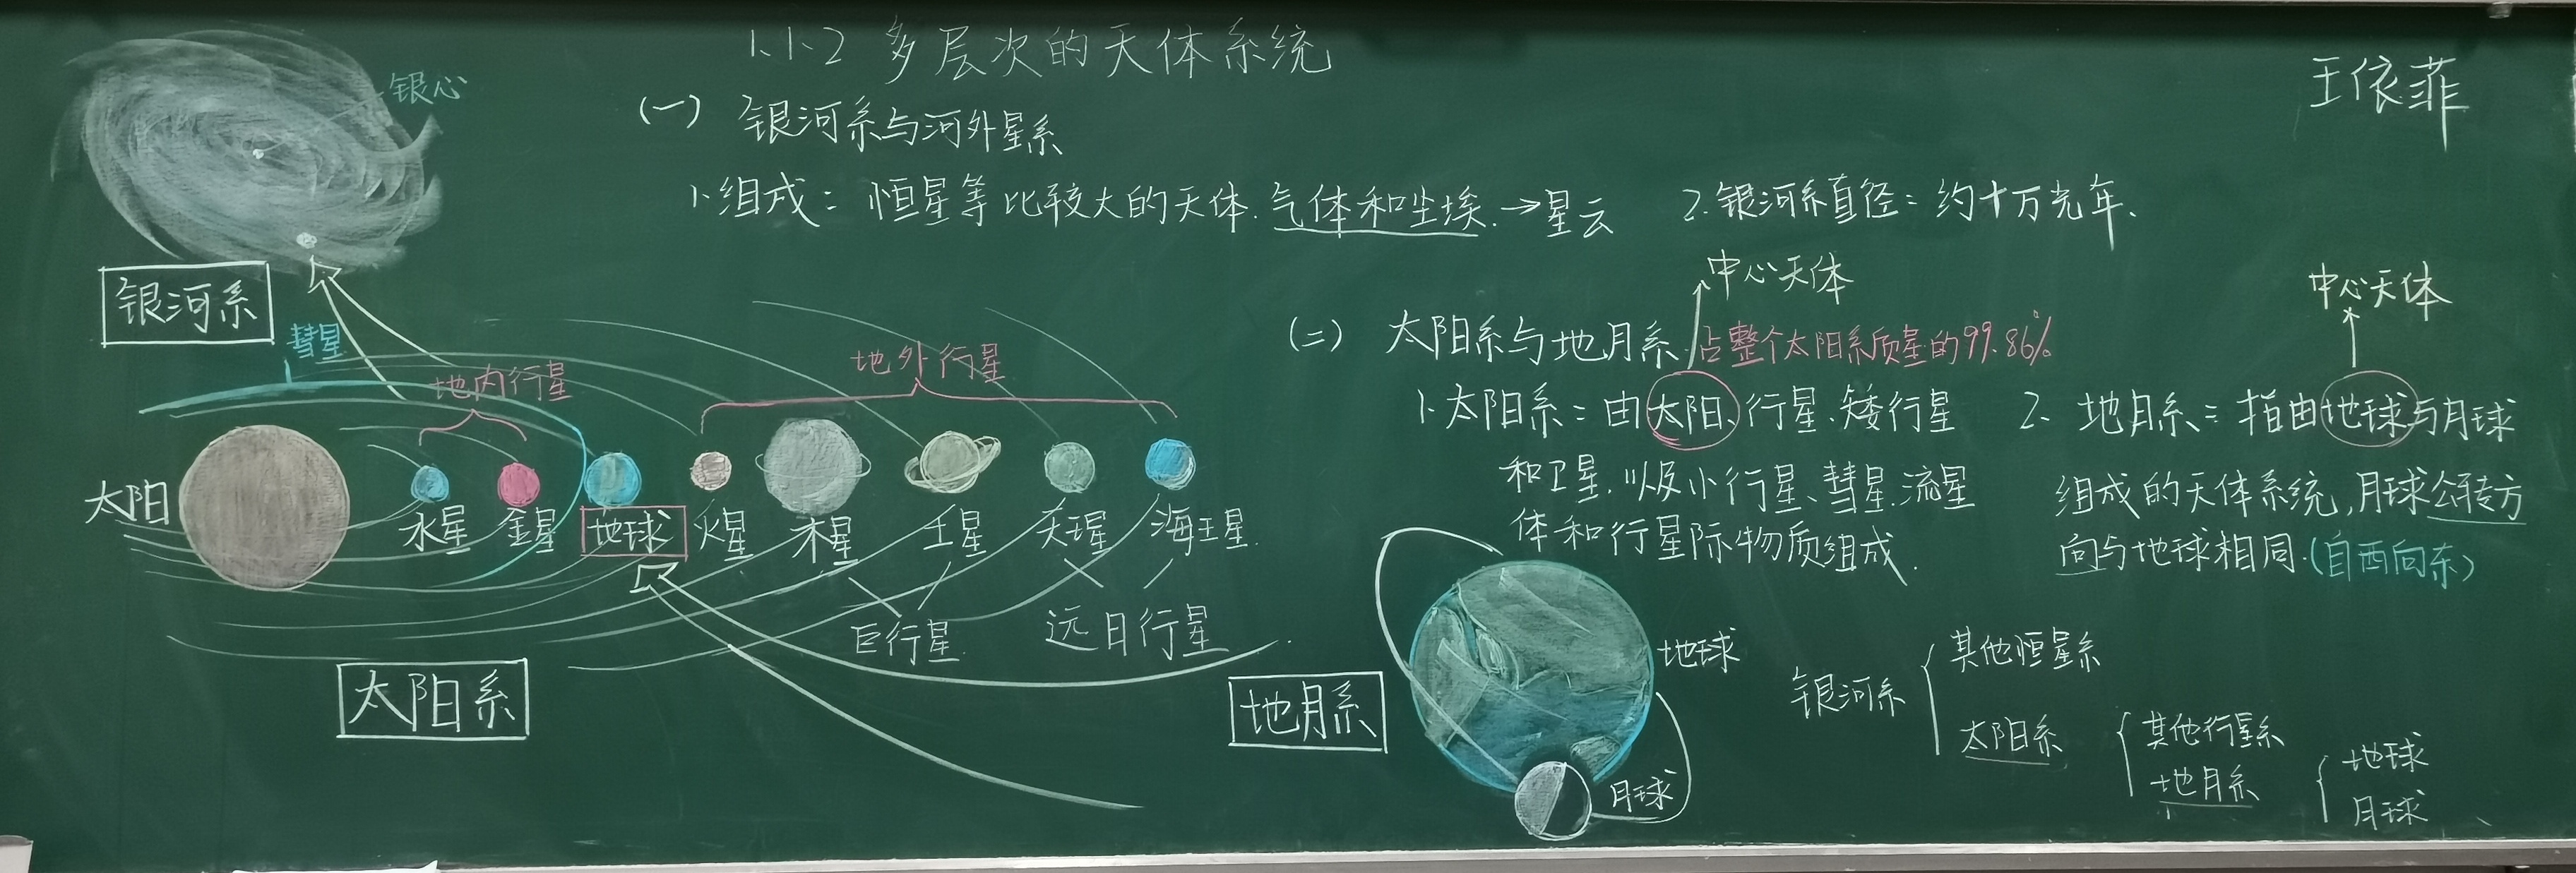 1.1.2 多层次的天体系统
王依菲
(一) 银河系与河外星系
1.组成：恒星等比较大的天体.气体和尘埃.→星云
2.银河系直径：约十万光年.
银心
银河系
彗星
地内行星
地外行星
太阳
水星
金星
地球
火星
木星
土星
天王星
海王星
巨行星
远日行星
太阳系
中心天体
(二) 太阳系与地月系
占整个太阳系质量的99.86%
1.太阳系：由太阳、行星、矮行星
和卫星.以及小行星、彗星、流星
体和行星际物质组成.
中心天体
2. 地月系：指由地球与月球
组成的天体系统,月球公转方
向与地球相同.(自西向东)
地月系
地球
月球
银河系
其他恒星系
太阳系
其他行星系
地月系
地球
月球